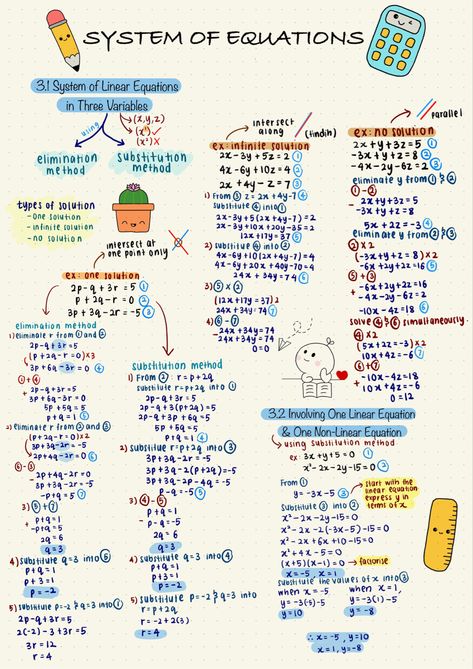 SYSTEM OF EQUATIONS
3.1 System of Linear Equations
in Three Variables
using
→(x,y,z)
→(x¹)✓
(x²)✗
elimination
method
substitution
method
types of solution
- one solution
- infinite solution
- no solution
intersect at
one point only
ex: one solution
2p-q+3r=5 ①
p+2q-r=0 ②
3p+3q-2r=-5 ③
elimination method
1) eliminate r from ① and ②
2p-q+3r=5
(p+2q-r=0)×3
3p+6q-3r=0 ④
① + ④
2p-q+3r=5
+ 3p+6q-3r=0
5p+5q=5
p+q=1 ⑤
2) eliminate r from ② and ③
(p+2q-r=0)×2
3p+3q-2r=-5
2p+4q-2r=0 ⑥
⑥-③
2p+4q-2r=0
- 3p+3q-2r=-5
-p+q=5 ⑦
3) ⑤+⑦
p+q=1
+ -p+q=5
2q=6
q=3
4) substitute q=3 into ⑤
p+q=1
p+3=1
p=-2
5) substitute p=-2 & q=3 into ①
2p-q+3r=5
2(-2)-3+3r=5
3r=12
r=4
substitution method
1) From ②: r=p+2q
substitute r=p+2q into ①
2p-q+3r=5
2p-q+3(p+2q)=5
2p-q+3p+6q=5
5p+5q=5
p+q=1 ④
2) substitute r=p+2q into ③
3p+3q-2r=-5
3p+3q-2(p+2q)=-5
3p+3q-2p-4q=-5
p-q=-5 ⑤
3) ④-⑤
p+q=1
- p-q=-5
2q=6
q=3
4) substitute q=3 into ④
p+q=1
p+3=1
p=-2
5) substitute p=-2 & q=3 into
r=p+2q
r=-2+2(3)
r=4
intersect
along
(findin)
ex: infinite solution
2x-3y+5z=2 ①
4x-6y+10z=4 ②
2x+4y-z=7 ③
1) From ③ z=2x+4y-7 ④
substitute ④ into ①
2x-3y+5(2x+4y-7)=2
2x-3y+10x+20y-35=2
12x+17y=37 ⑤
2) substitute ④ into ②
4x-6y+10(2x+4y-7)=4
4x-6y+20x+40y-70=4
24x+34y=74 ⑥
3) ⑤×2
(12x+17y=37)2
24x+34y=74 ⑦
4) ⑥-⑦
24x+34y=74
- 24x+34y=74
0=0
parallel
ex: no solution
2x+y+3z=5 ①
-3x+y+z=8 ②
-4x-2y-6z=2 ③
eliminate y from ① & ②
①-②
2x+y+3z=5
- -3x+y+z=8
5x+2z=-3 ④
eliminate y from ② & ③
② x2
(-3x+y+z=8)2
-6x+2y+2z=16 ⑤
⑤+③
-6x+2y+2z=16
+ -4x-2y-6z=2
-10x-4z=18 ⑥
solve ④ & ⑥ simultaneously.
④×2
(5x+2z=-3)×2
10x+4z=-6 ⑦
⑥+⑦
-10x-4z=18
+ 10x+4z=-6
0=12
3.2 Involving One Linear Equation
& One Non-Linear Equation
using substitution method
ex: 3x+y+5=0 ①
x²-2x-2y-15=0 ②
From ①
y=-3x-5 ③
start with the
linear equation
express y in
terms of x
substitute ③ into ②
x²-2x-2y-15=0
x²-2x-2(-3x-5)-15=0
x²-2x+6x+10-15=0
x²+4x-5=0
(x+5)(x-1)=0 → factorise
x=-5, x=1
substitute the values of x into ③
when x=-5 when x=1,
y=-3(-5)-5 y=-3(1)-5
y=10 y=-8
∴ x=-5, y=10
x=1, y=-8